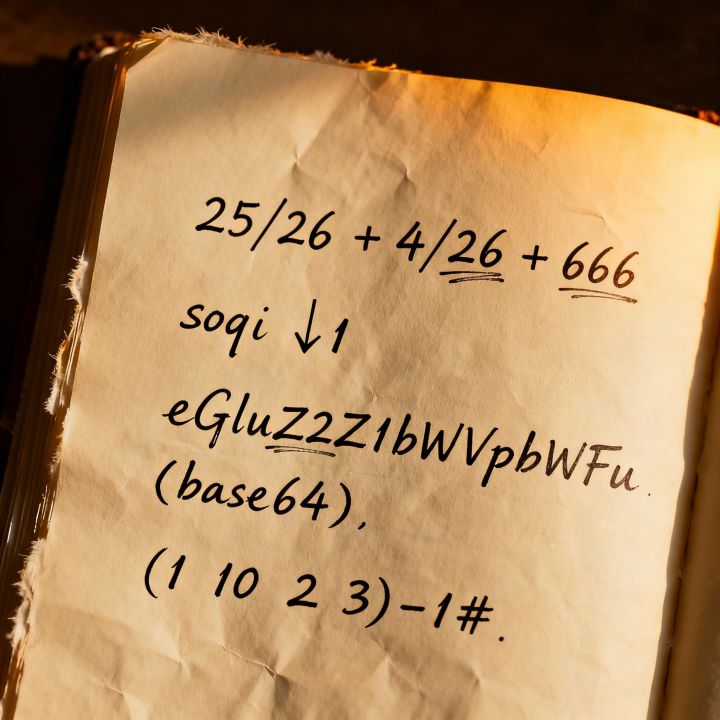 25/26 + 4/26 + 666
soqi ↓1
eGluZ2Z1bWVpbWFu.
(base64),
(1 10 2 3)-1#.